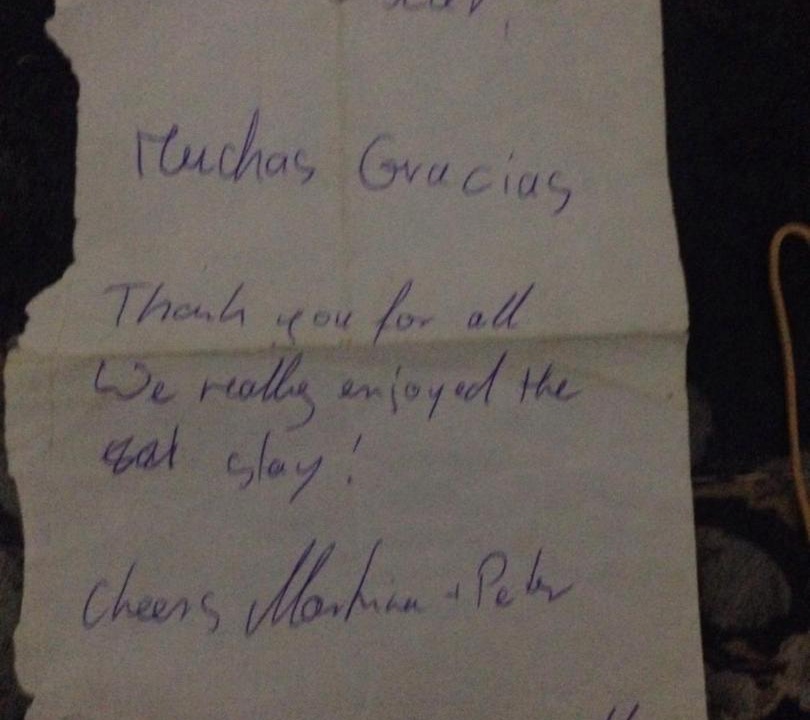 Muchas Gracias
Thank you for all
We really enjoyed the
stay!
Cheers Martina + Peter